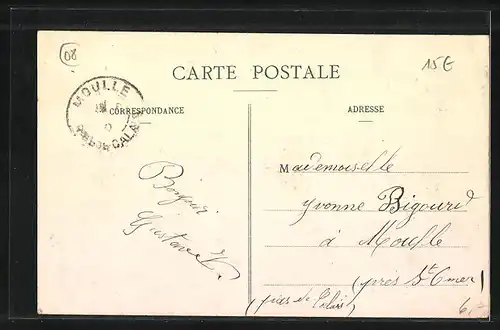 20
15€
CARTE POSTALE
MOULLE
CALAIS
CORRESPONDANCE
ADRESSE
Bonjour
Gustave
Mademoiselle
Yvonne Bigourd
à Moulle
(près St Omer)
(pas de Calais)